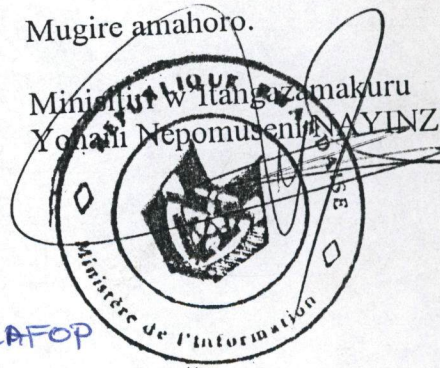 Mugire amahoro.
Minisitiri w'Itangazamakuru
Yohani Nepomuseni NAYINZ
REPUBLIQUE RWANDAISE
Ministère de l'Information
AFOP